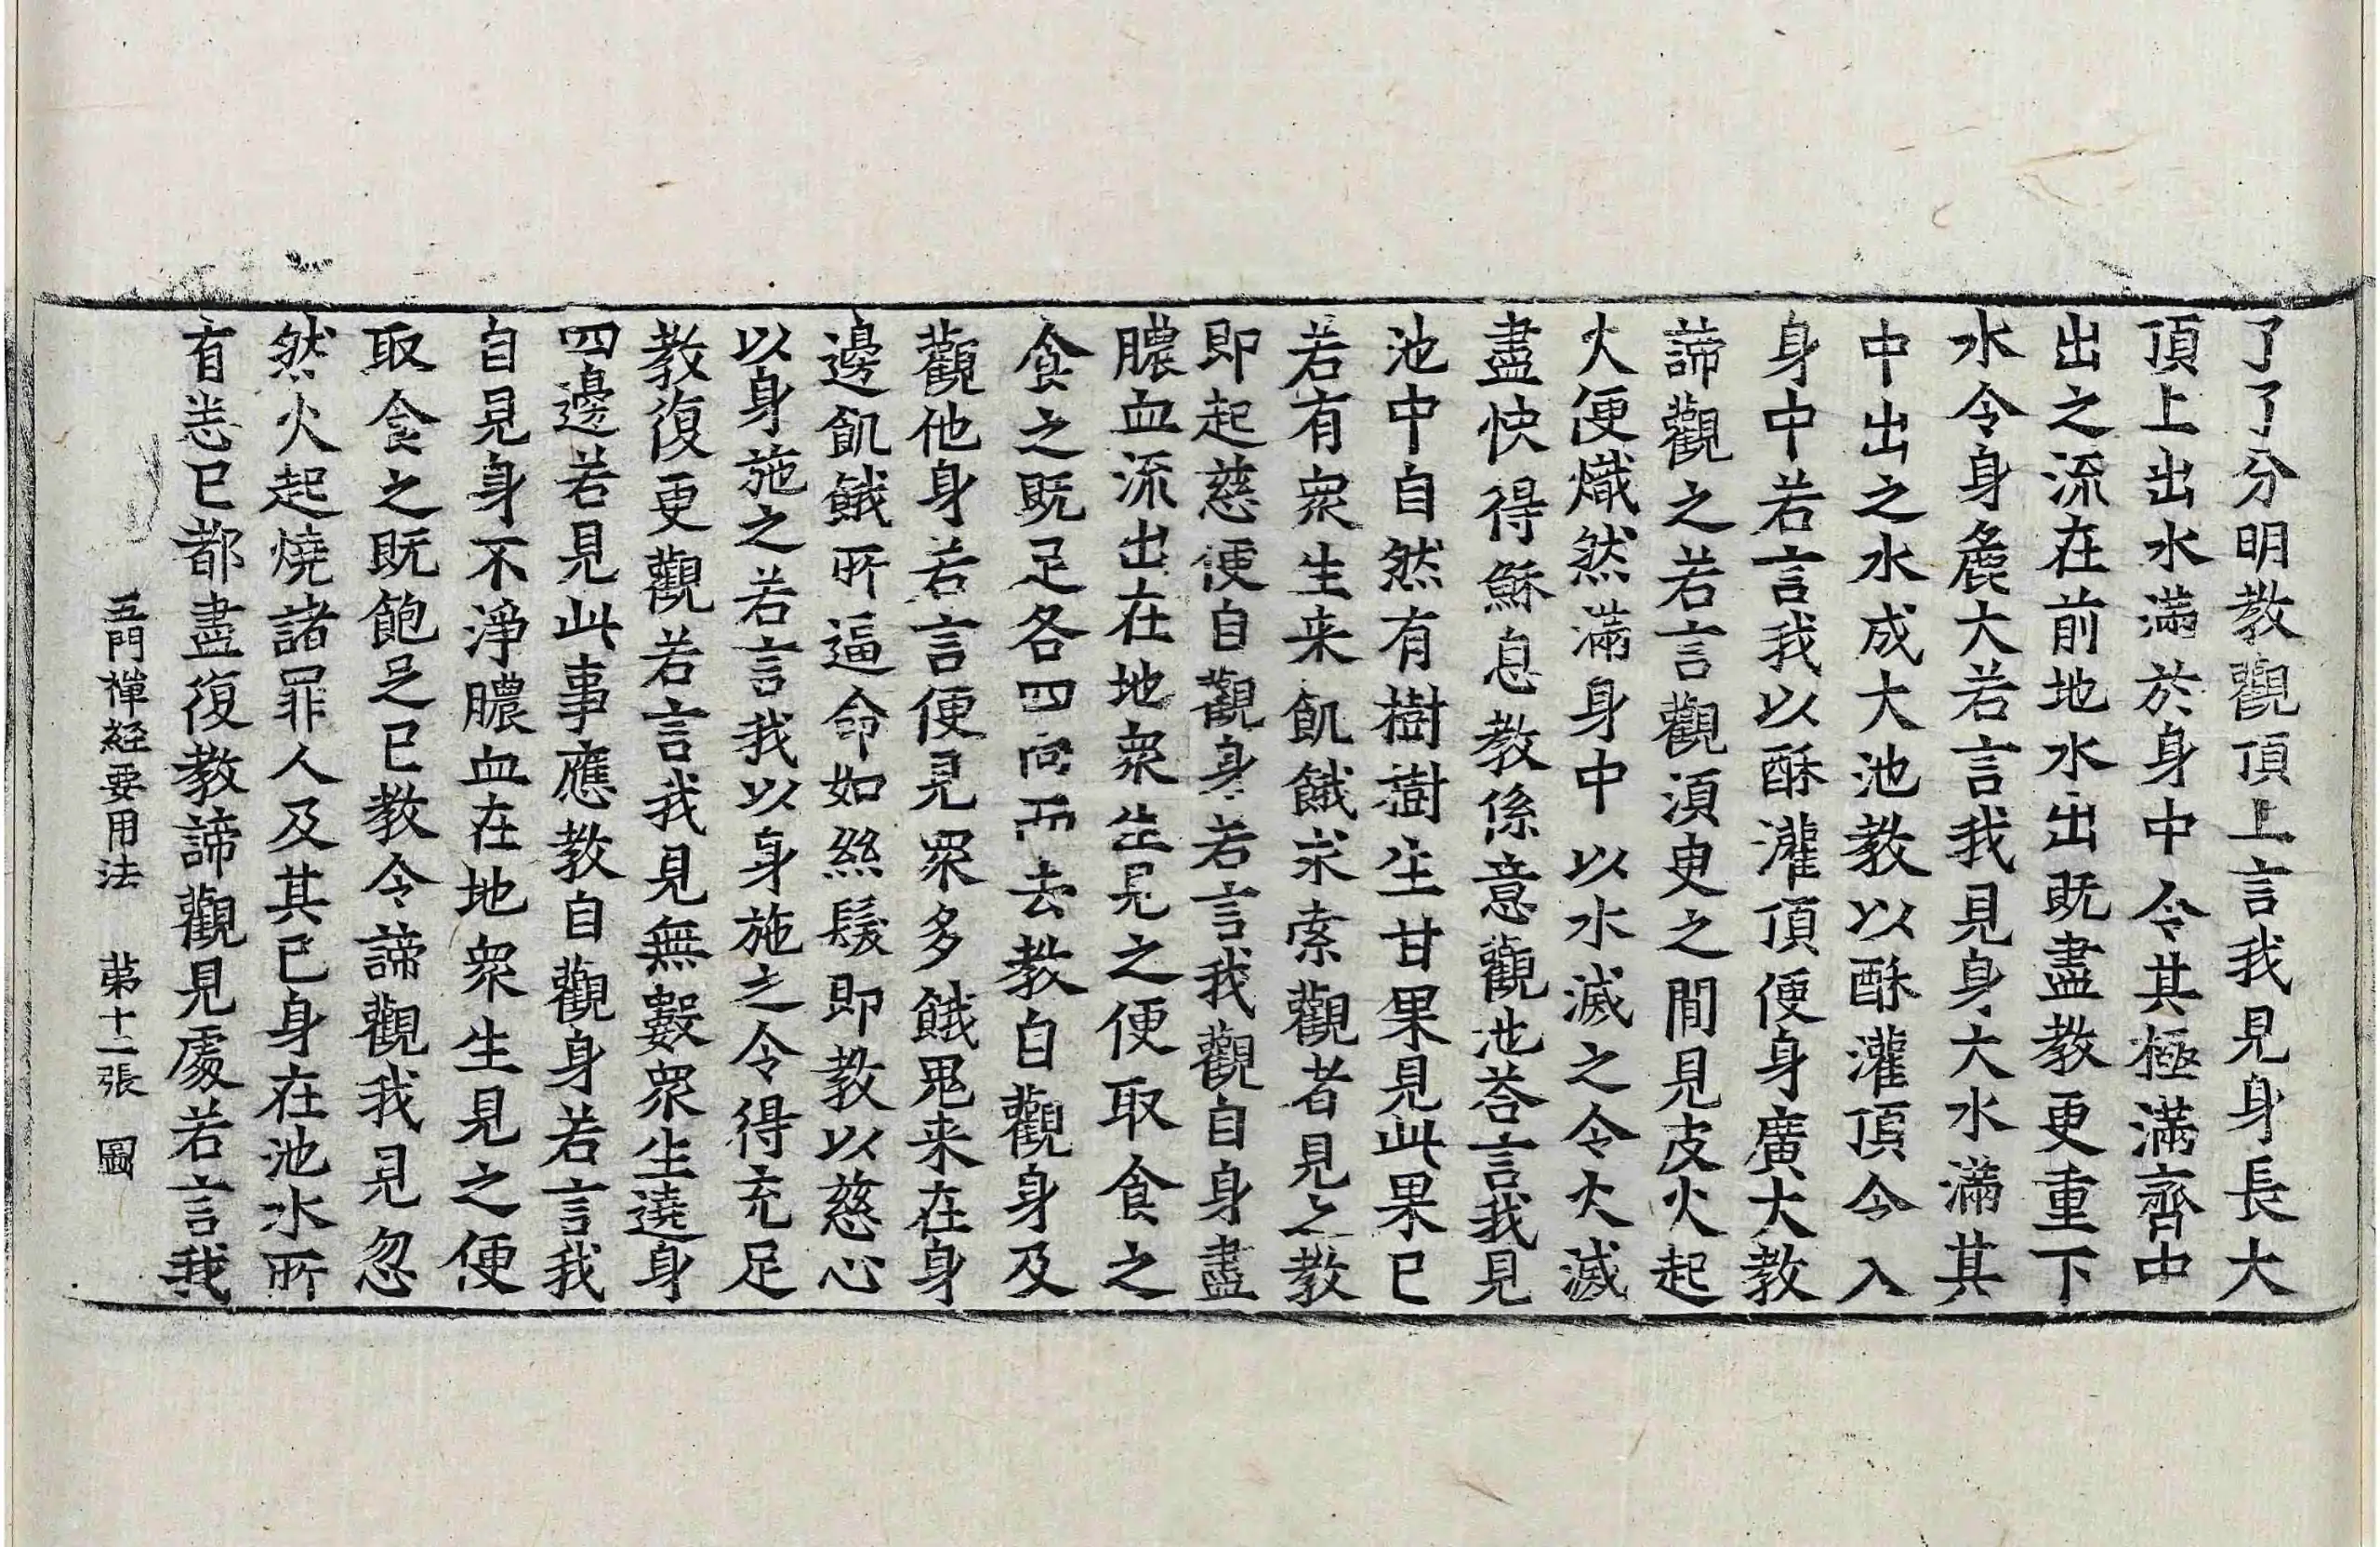 了了分明教觀頂上言我見身長大
頂上出水滿於身中令其極滿齊中
出之流在前地水出既盡教更重下
水令身麁大若言我見身大水滿其
中出之水成大池教以酥灌頂令入
身中若言我以酥灌頂便身廣大教
諦觀之若言觀須臾之間見皮火起
火便熾然滿身中以水滅之令火滅
盡快得穌息教係意觀池荅言我見
池中自然有樹樹生甘果見此果已
若有衆生来飢餓求索觀者見之教
即起慈便自觀身若言我觀自身盡
膿血流出在地衆生見之便取食之
食之既足各四向而去教自觀身及
觀他身若言便見衆多餓鬼来在身
邊飢餓所逼命如絲髮即教以慈心
以身施之若言我以身施之令得充足
教復更觀若言我見無數衆生遶身
四邊若見此事應教自觀身若言我
自見身不淨膿血在地衆生見之便
取食之既飽足已教令諦觀我見忽
然火起燒諸罪人及其已身在池水所
有悉已都盡復教諦觀見處若言我
五門禪経要用法　第十二張　圖